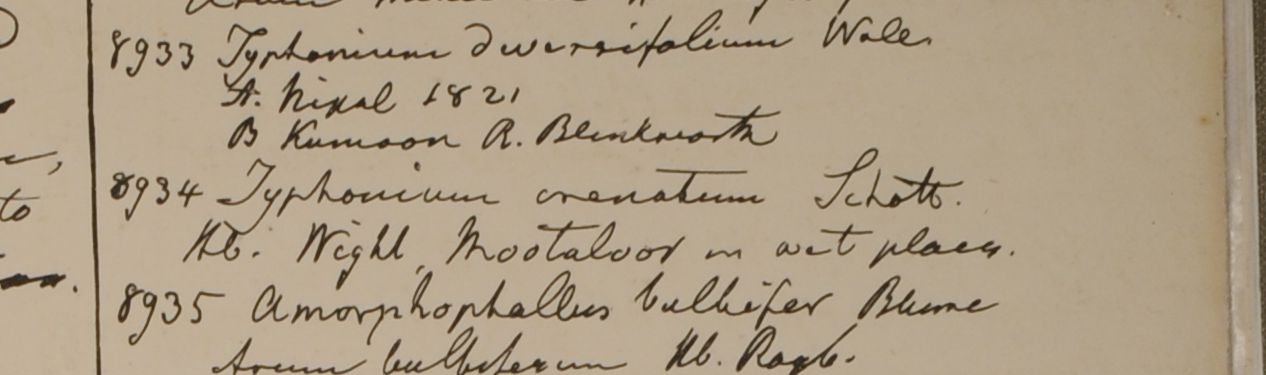 8933 Typhonium diversifolium Wall.
A. Nipal 1821
B Kumoon R. Blinkworth
8934 Typhonium crenatum Schott.
Hb. Wight, Mootaloor in wet places.
8935 Amorphophallus bulbifer Blume
Arum bulbiferum Hb. Roxb.